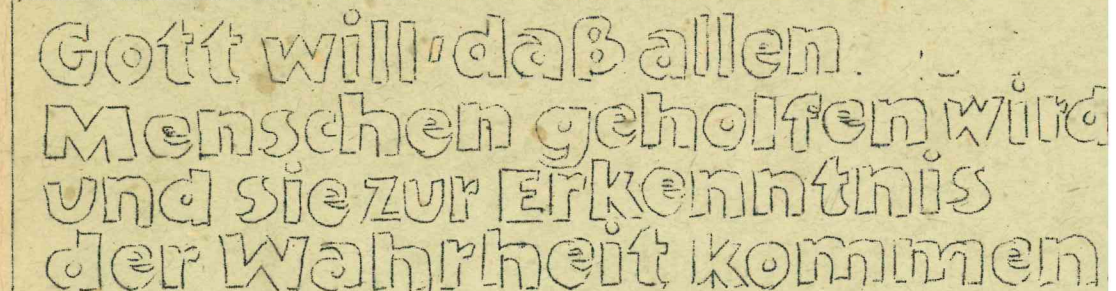 Gott will, daß allen
Menschen geholfen wird
und sie zur Erkenntnis
der Wahrheit kommen